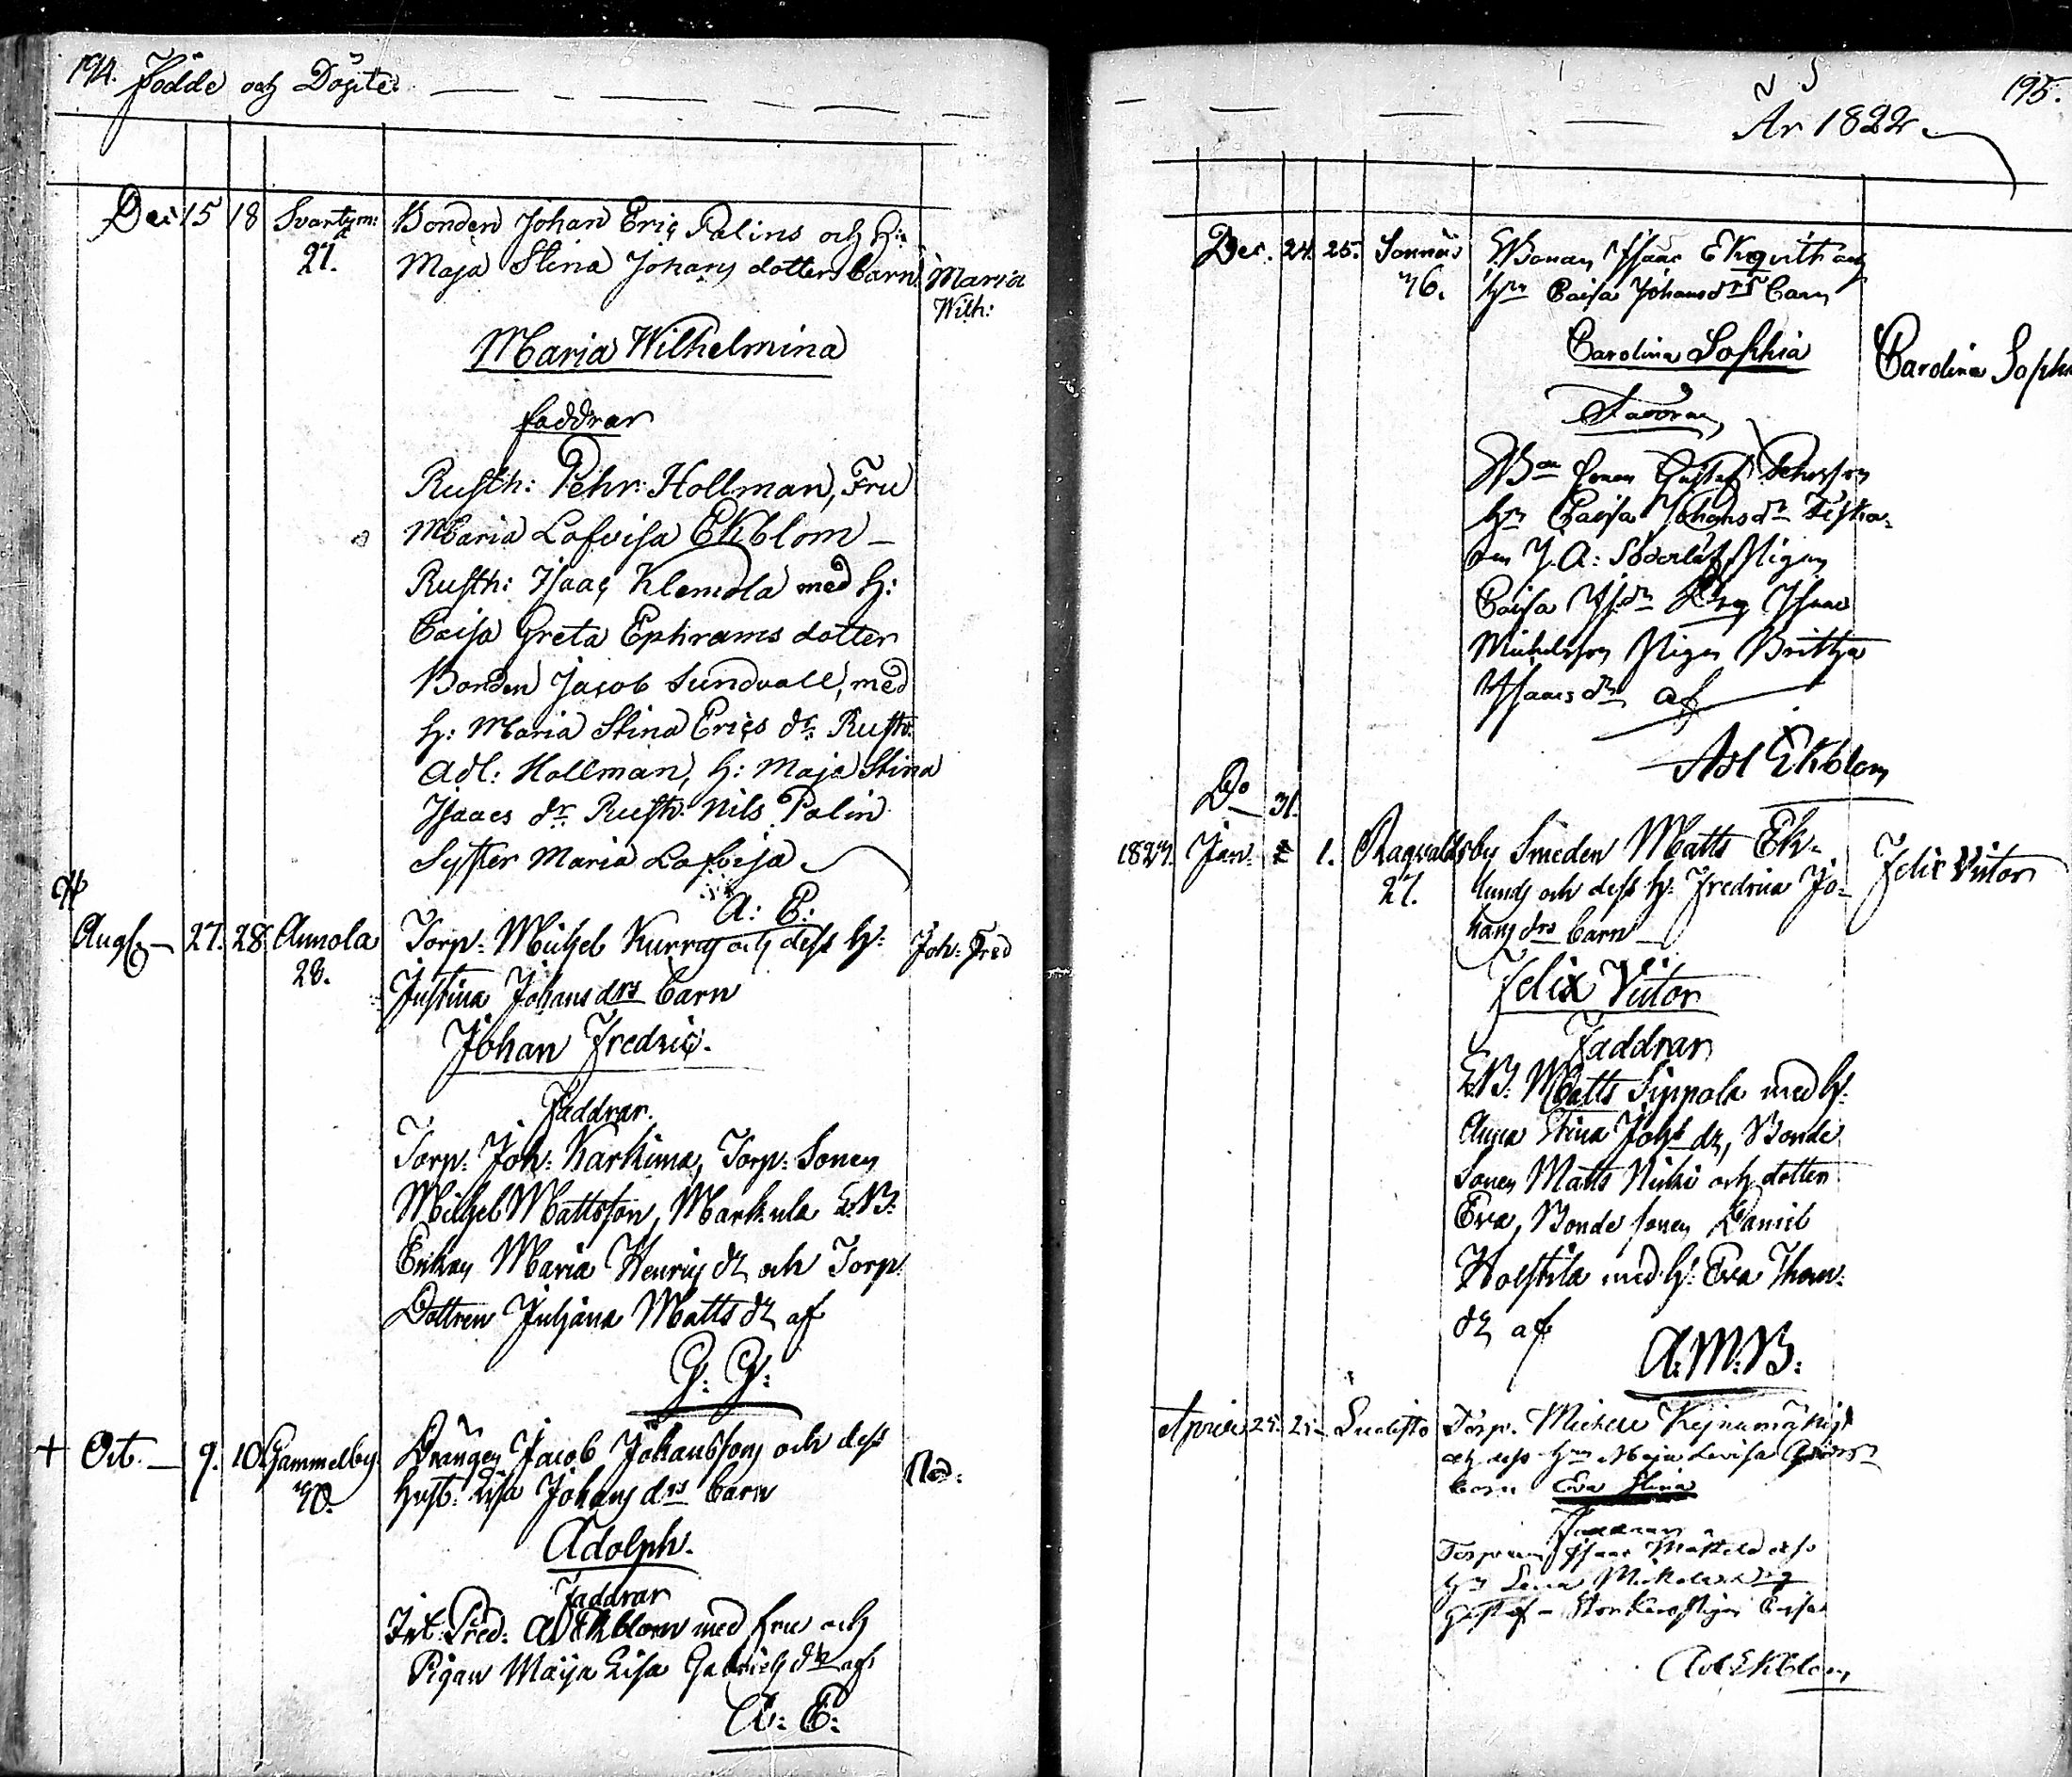 194. Födde och Döpte
Dec 15 18 Svartsm: Bonden Johan Eric Palins och H:
27. Maja Stina Johans dotters barn Maria
Wilh:
Maria Wilhelmina
faddrar
Rusth: Pehr Hollman, Fru
Maria Lovisa Ekblom
Rusth: Isaac Klemola med H:
Caisa Greta Ephrams dotter
Bonden Jacob Sundvall, med
H: Maria Stina Erics dr Rusth:
Adl: Hollman, H: Maja Stina
Isaacs dr Rusth: Nils Palin
Syster Maria Lovisa
A: E:
Aug 27. 28. Annola Torp: Michel Kurray och dess H:
28. Justina Johans drs barn Joh: Fred
Johan Fredric.
Faddrar.
Torp: Joh: Karkima, Torp: Sonen
Michel Mattsson, Markula E.B.
Enkan Maria Henrics dr och Torp:
Dottren Juliana Matts dr af
G: G:
+ Oct. 9. 10. Gammelby Drängen Jacob Johanssons och dess
40. hust: Lisa Johans drs barn Död:
Adolph.
Faddrar
Int. Pred: Ad Ekblom med fru och
Pigan Maija Lisa Gabriels dr af
A: E:
195.
År 1822
Dec. 24. 25. Sonnäs Isaac Ekqvist och
36. Hn Caisa Johansdrs barn
Carolina Sophia Carolina Soph
Faddrar
Gustaf Pehrsson
Hn Caisa Johansdr
J. A: Pigan
Caisa Isdr Isaac
Michelsson Pigan Britha
Isaacs dr af
Ad Ekblom
Do 31.
1823. Jan. 1. Ragvaldsby Smeden Matts Ek-
27. lunds och dess H: Fredrica Jo- Felix Victor
hans drs barn
Felix Victor
Faddrar
E.B. Matts Sippola med H:
Anna Stina Johs dr, Bonde
Sonen Matts och dotter
Eva, Bonde sonen Daniel
med H: Eva Thom:
dr af
A.M:B:
April 25. 25. Torp. Michel
och dess Hn Maja Lovisa
barn Eva Stina
Faddrar
Torparen Isaac
Hn Lena
Gustaf Pigan Caisa
Ad Ekblom